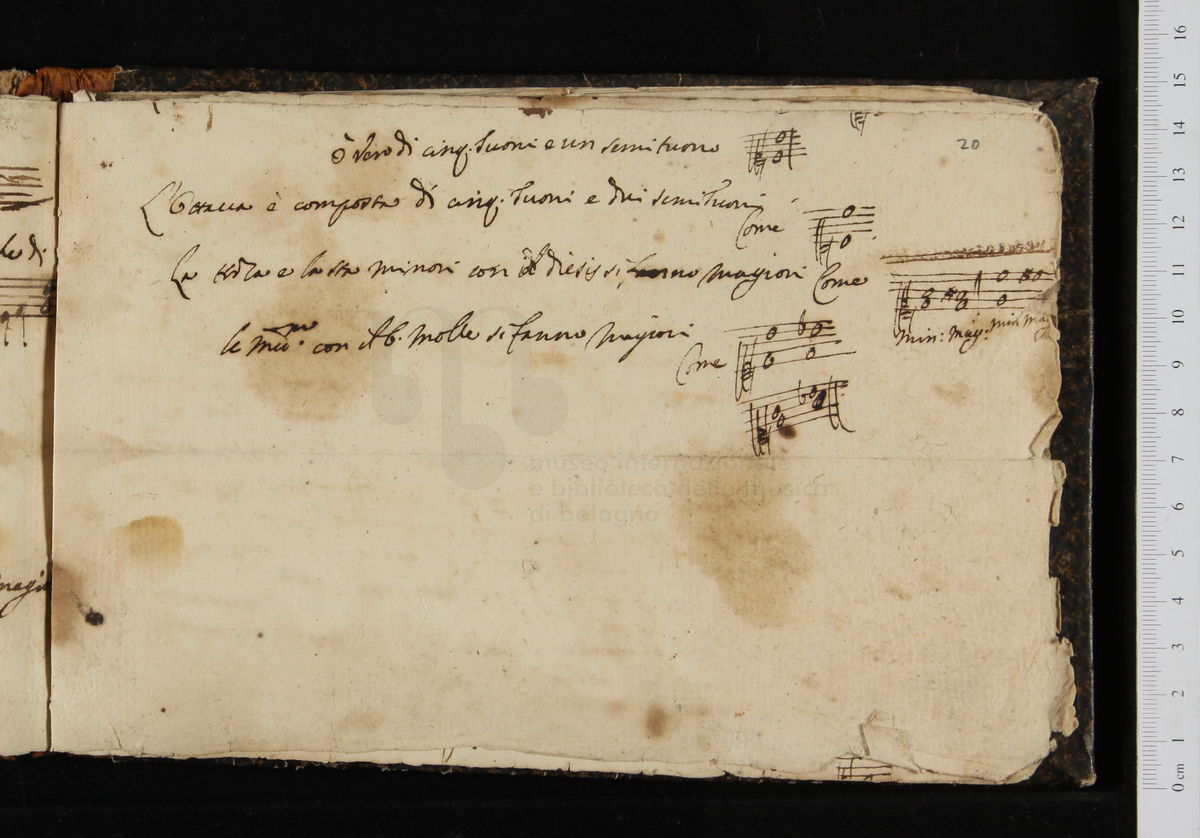 20
ò vero di cinq. tuoni e un semituono
L'Ottava è composta di cinq. tuoni e dui semituoni
Come
La terza e la sta minori con il diesis si fanno magiori Come
min: mag: min mag
le med.me con il b. molle si fanno magiori
Come
museo internazionale
e biblioteca della musica
di bologna
he di
magi
16
15
9
8
7
6
5
4
3
2
1
0 cm